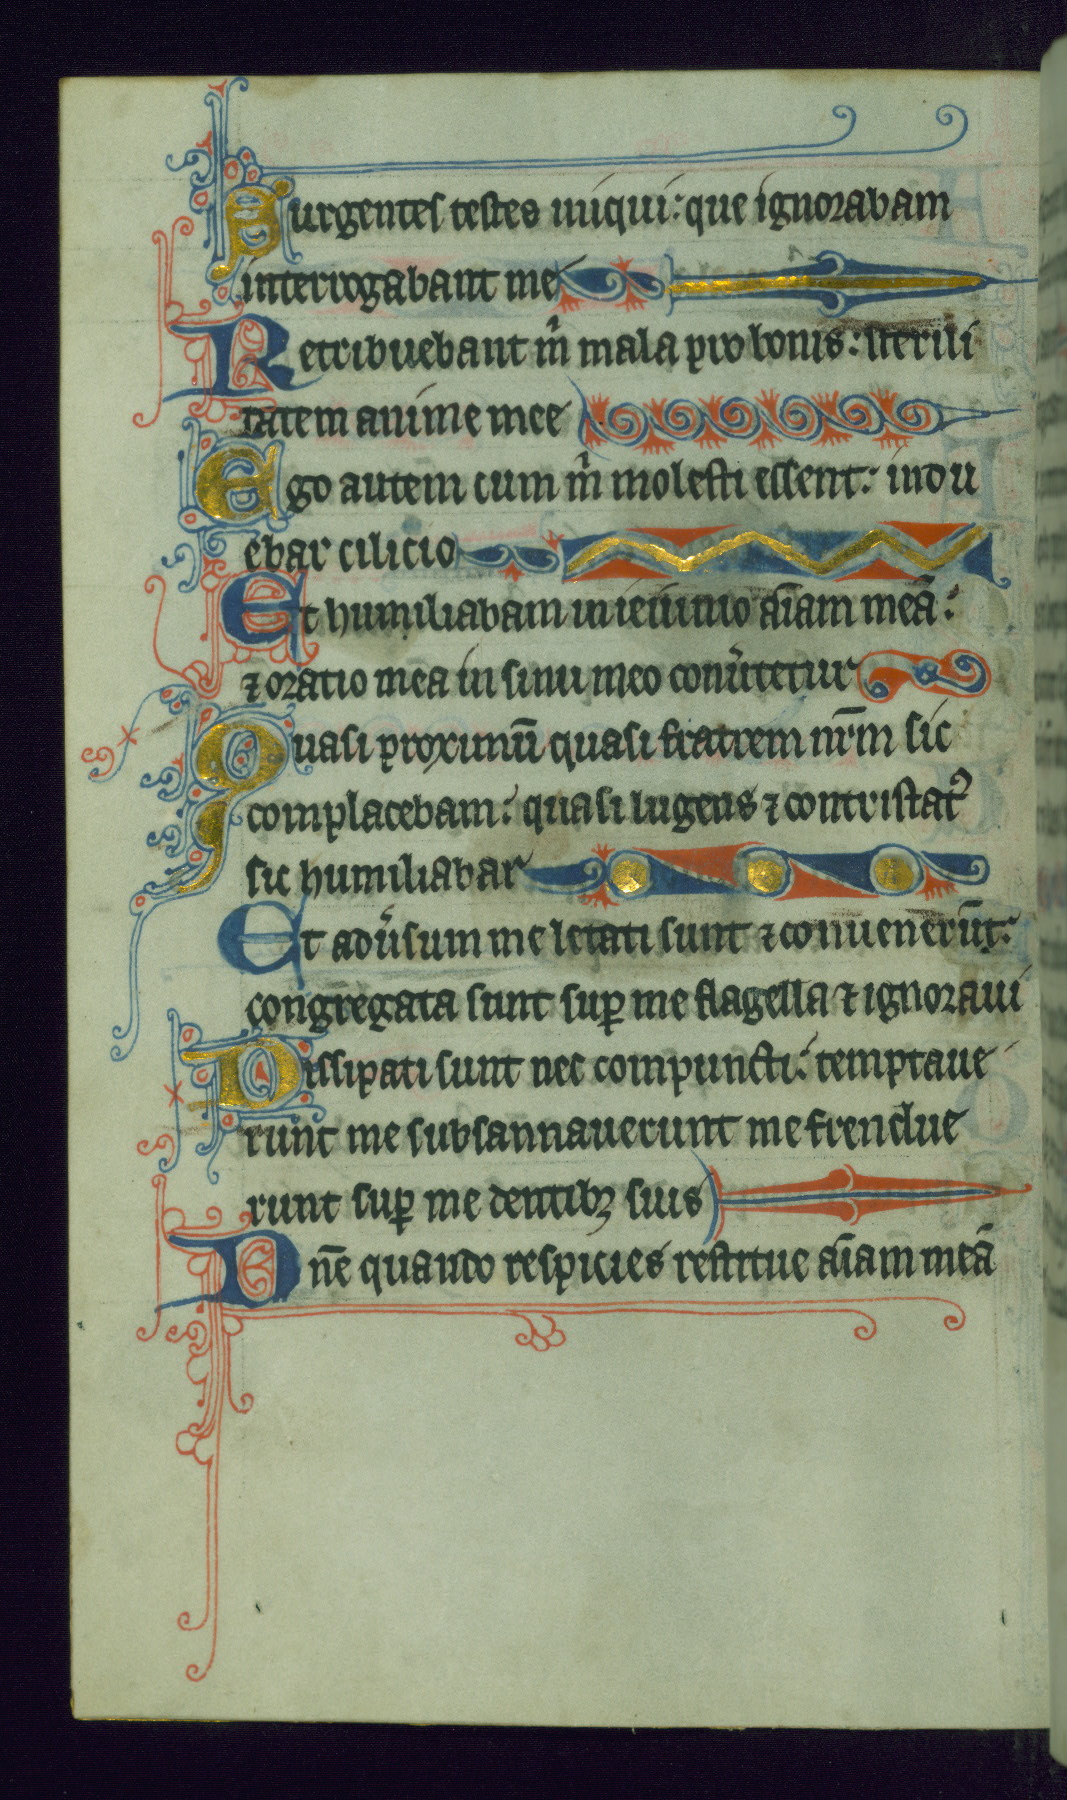 Surgentes testes iniqui: que ignorabam
interrogabant me
Retribuebant m̄ mala pro bonis: sterili
tatem anime mee
Ego autem cum m̄ molesti essent: indu
ebar cilicio
Et humiliabam in ieiunio āīam meā:
⁊ oratio mea in sinu meo conũtetur
Quasi proximū quasi fratrem nr̄m sic
complacebam: quasi lugens ⁊ contristatꝰ
sic humiliabar
Et adũsum me letati sunt ⁊ conuenerūt:
congregata sunt suꝑ me flagella ⁊ ignoraui
Dissipati sunt nec compuncti: temptaue
runt me subsannauerunt me frendue
runt suꝑ me dentibꝫ suis
Dn̄e quando respicies restitue āīam meā